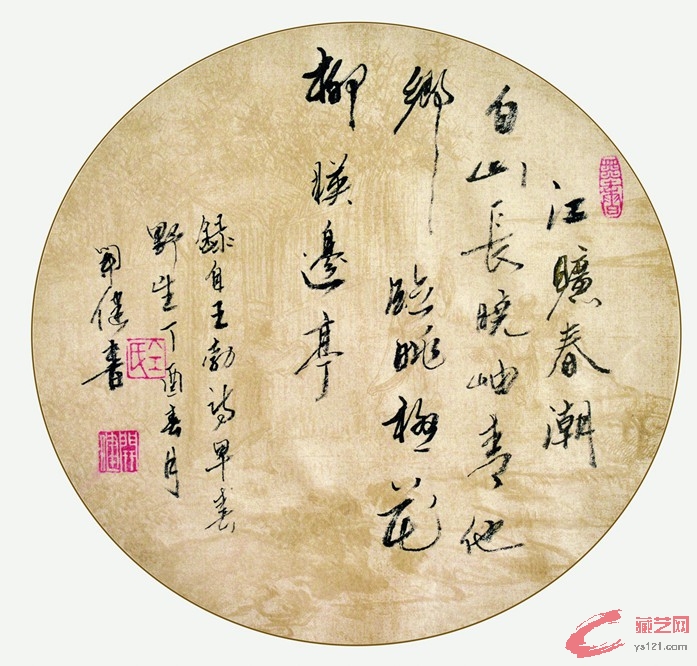 江曠春潮
白山長曉岫青他
鄉臨眺極花
柳暎邊亭
録自王勃詩早春
野望丁酉春月
開健書
王氏
開健
藏艺网
ys121.com